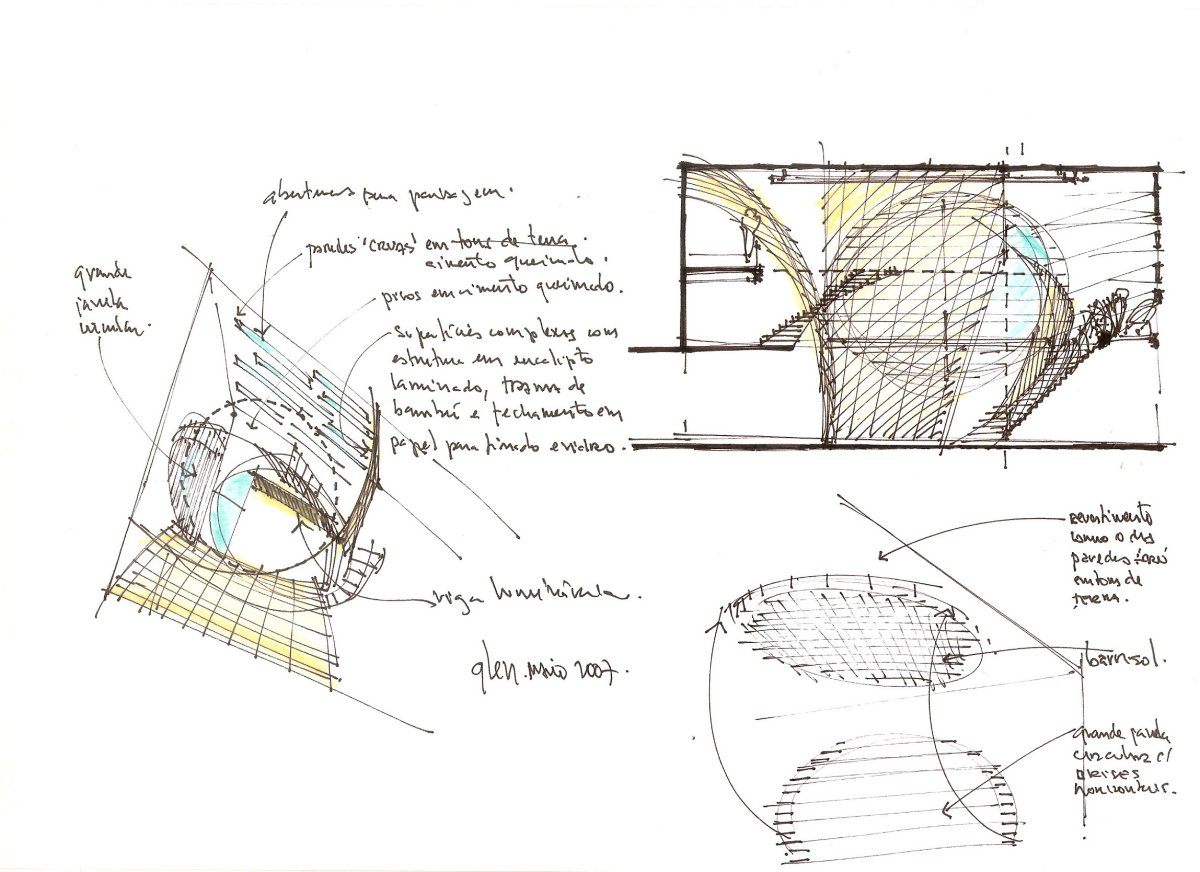 aberturas para paisagem.
paredes 'cruas' em tons de terra.
cimento queimado.
pisos em cimento queimado.
superfícies complexas com
estrutura em eucalipto
laminado, trama de
bambú e fechamento em
papel para linado e vidro.
grande
janela
circular.
viga luminária.
glen. maio 2007.
revestimento
como o das
paredes 'cru'
em tons de
terra.
barrisol.
grande janela
circular c/
brises
horizontais.